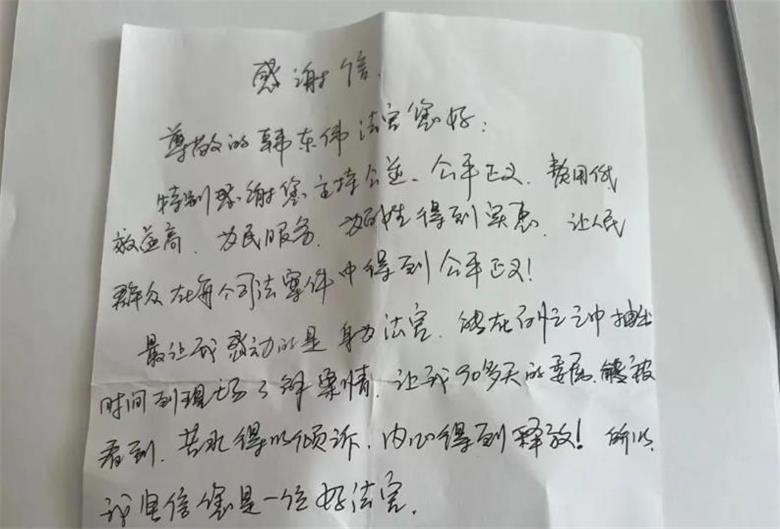 感谢信.
尊敬的韩东伟法官您好:
特别感谢您主持公益、公平正义、费用低
效益高、为民服务、为百姓得到实惠、让人民
群众在每个司法案件中得到公平正义!
最让我感动的是身为法官、能在百忙之中抽出
时间到现场了解案情、让我90多天的委屈、能够被
看到、苦水得以倾诉、内心得到释放! 所以、
我坚信您是一位好法官.